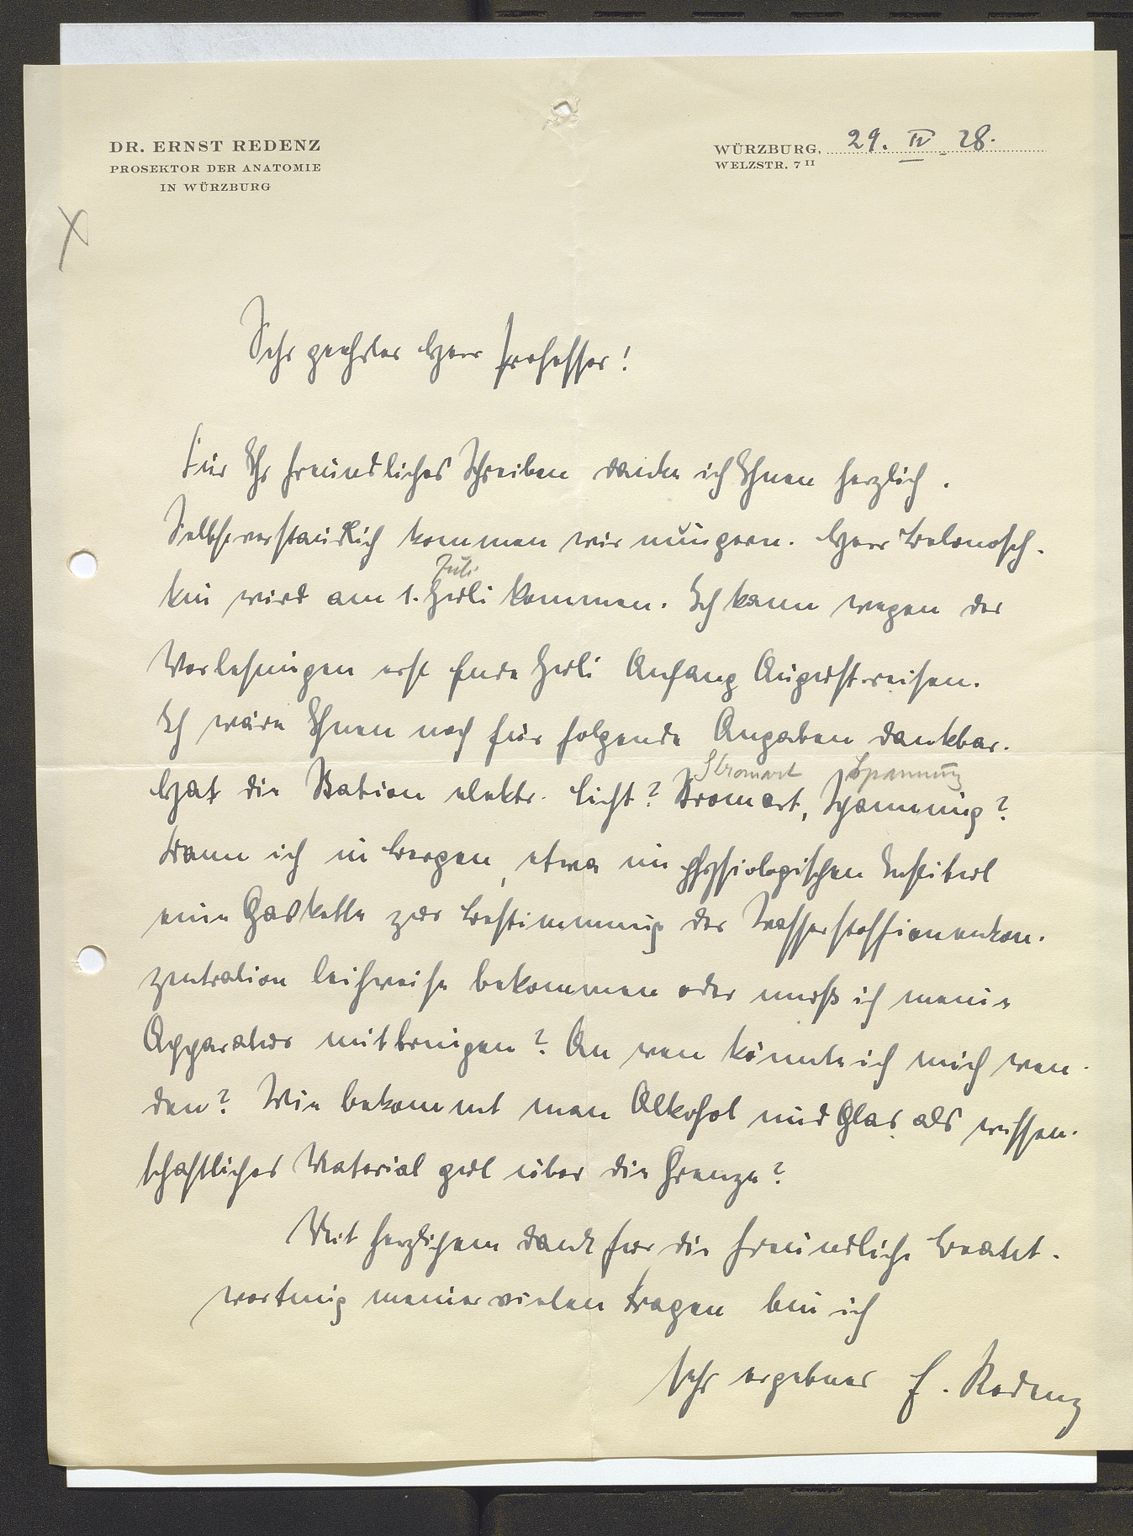 DR. ERNST REDENZ
PROSEKTOR DER ANATOMIE
IN WÜRZBURG
WÜRZBURG, 29. IV. 28.
WELZSTR. 7 II
X
Sehr geehrter Herr Professor!
Für Ihr freundliches Schreiben danke ich Ihnen herzlich.
Selbstverständlich kommen wir nun gern. Herr Belonosch-
Juli
kin wird am 1. Juli kommen. Ich kann wegen der
Vorlesungen erst Ende Juli Anfang August reisen.
Ich wäre Ihnen noch für folgende Angaben dankbar.
Stromart Spannung
Hat die Station elektr. Licht? Stromart, Spannung?
Kann ich in Bergen, etwa im physiologischen Institut
eine Gaskette zur Bestimmung der Wasserstoffionenkon-
zentration leihweise bekommen oder muß ich meine
Apparatur mitbringen? An wen könnte ich mich wen-
den? Wie bekommt man Alkohol und Glas als wissen-
schaftliches Material gut über die Grenze?
Mit herzlichem Dank für die freundliche Beant-
wortung meiner vielen Fragen bin ich
sehr ergebener E. Redenz